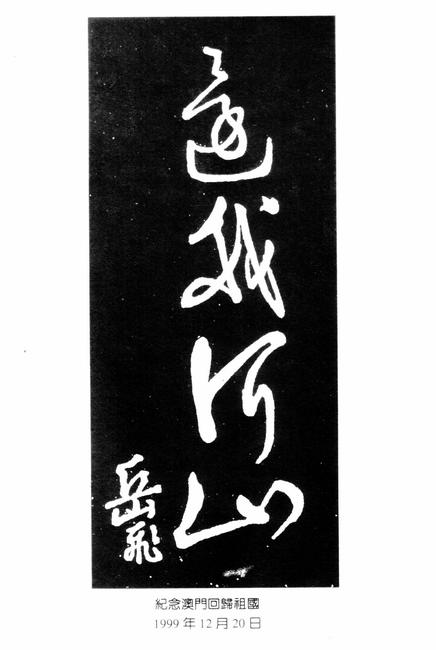 還我河山
岳飛
紀念澳門回歸祖國
1999 年 12 月 20 日